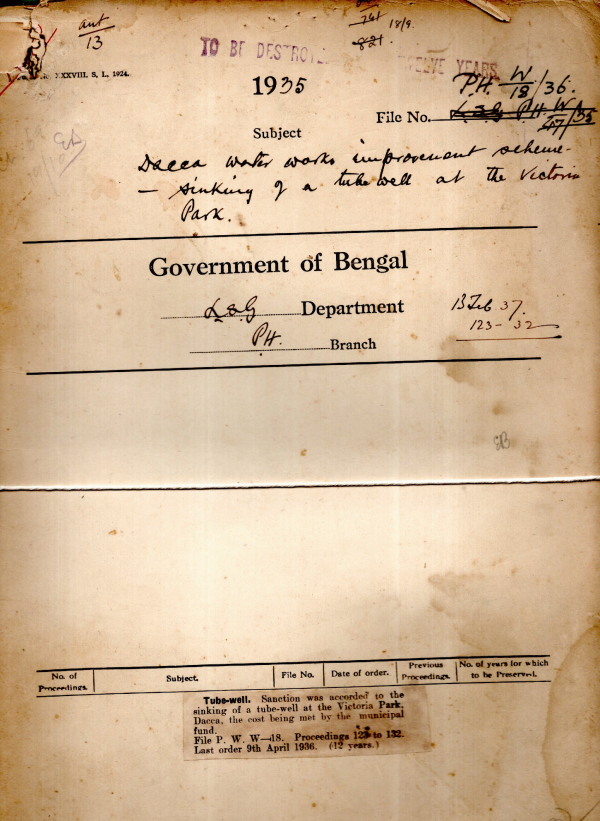 13
18/9.
821.
TO BE DESTROYED TWELVE YEARS
XXVIII. S, L, 1924.
1935
P.H. W/18/36.
File No. L.S.G. P.H. W/47/35
Subject
Dacca water works improvement scheme-
- sinking of a tube well at the Victoria
Park.
Government of Bengal
L.S.G Department
B Feb 37.
123-32
P.H. Branch
No. of Proceedings. Subject. File No. Date of order. Previous Proceedings. No. of years for which to be Preserved.
Tube-well. Sanction was accorded to the
sinking of a tube-well at the Victoria Park,
Dacca, the cost being met by the municipal
fund.
File P. W. W—18. Proceedings 123 to 132.
Last order 9th April 1936. (12 years.)